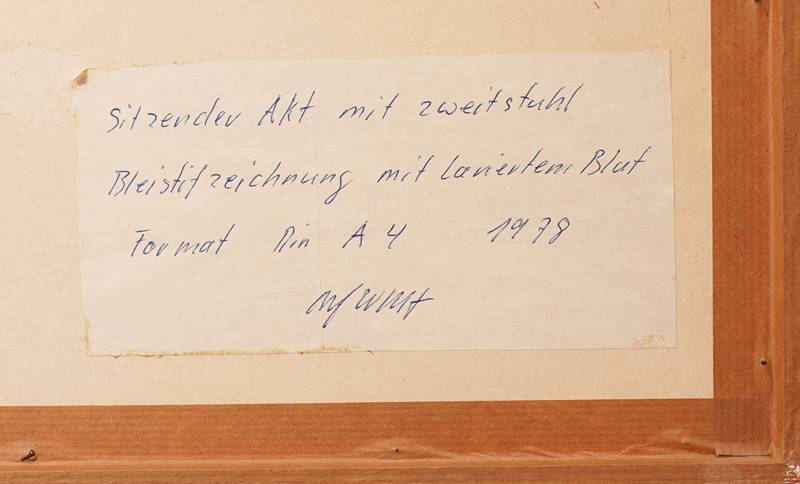 Sitzender Akt mit zweitstuhl
Bleistifzeichnung mit laviertem Blut
Format Din A 4 1978